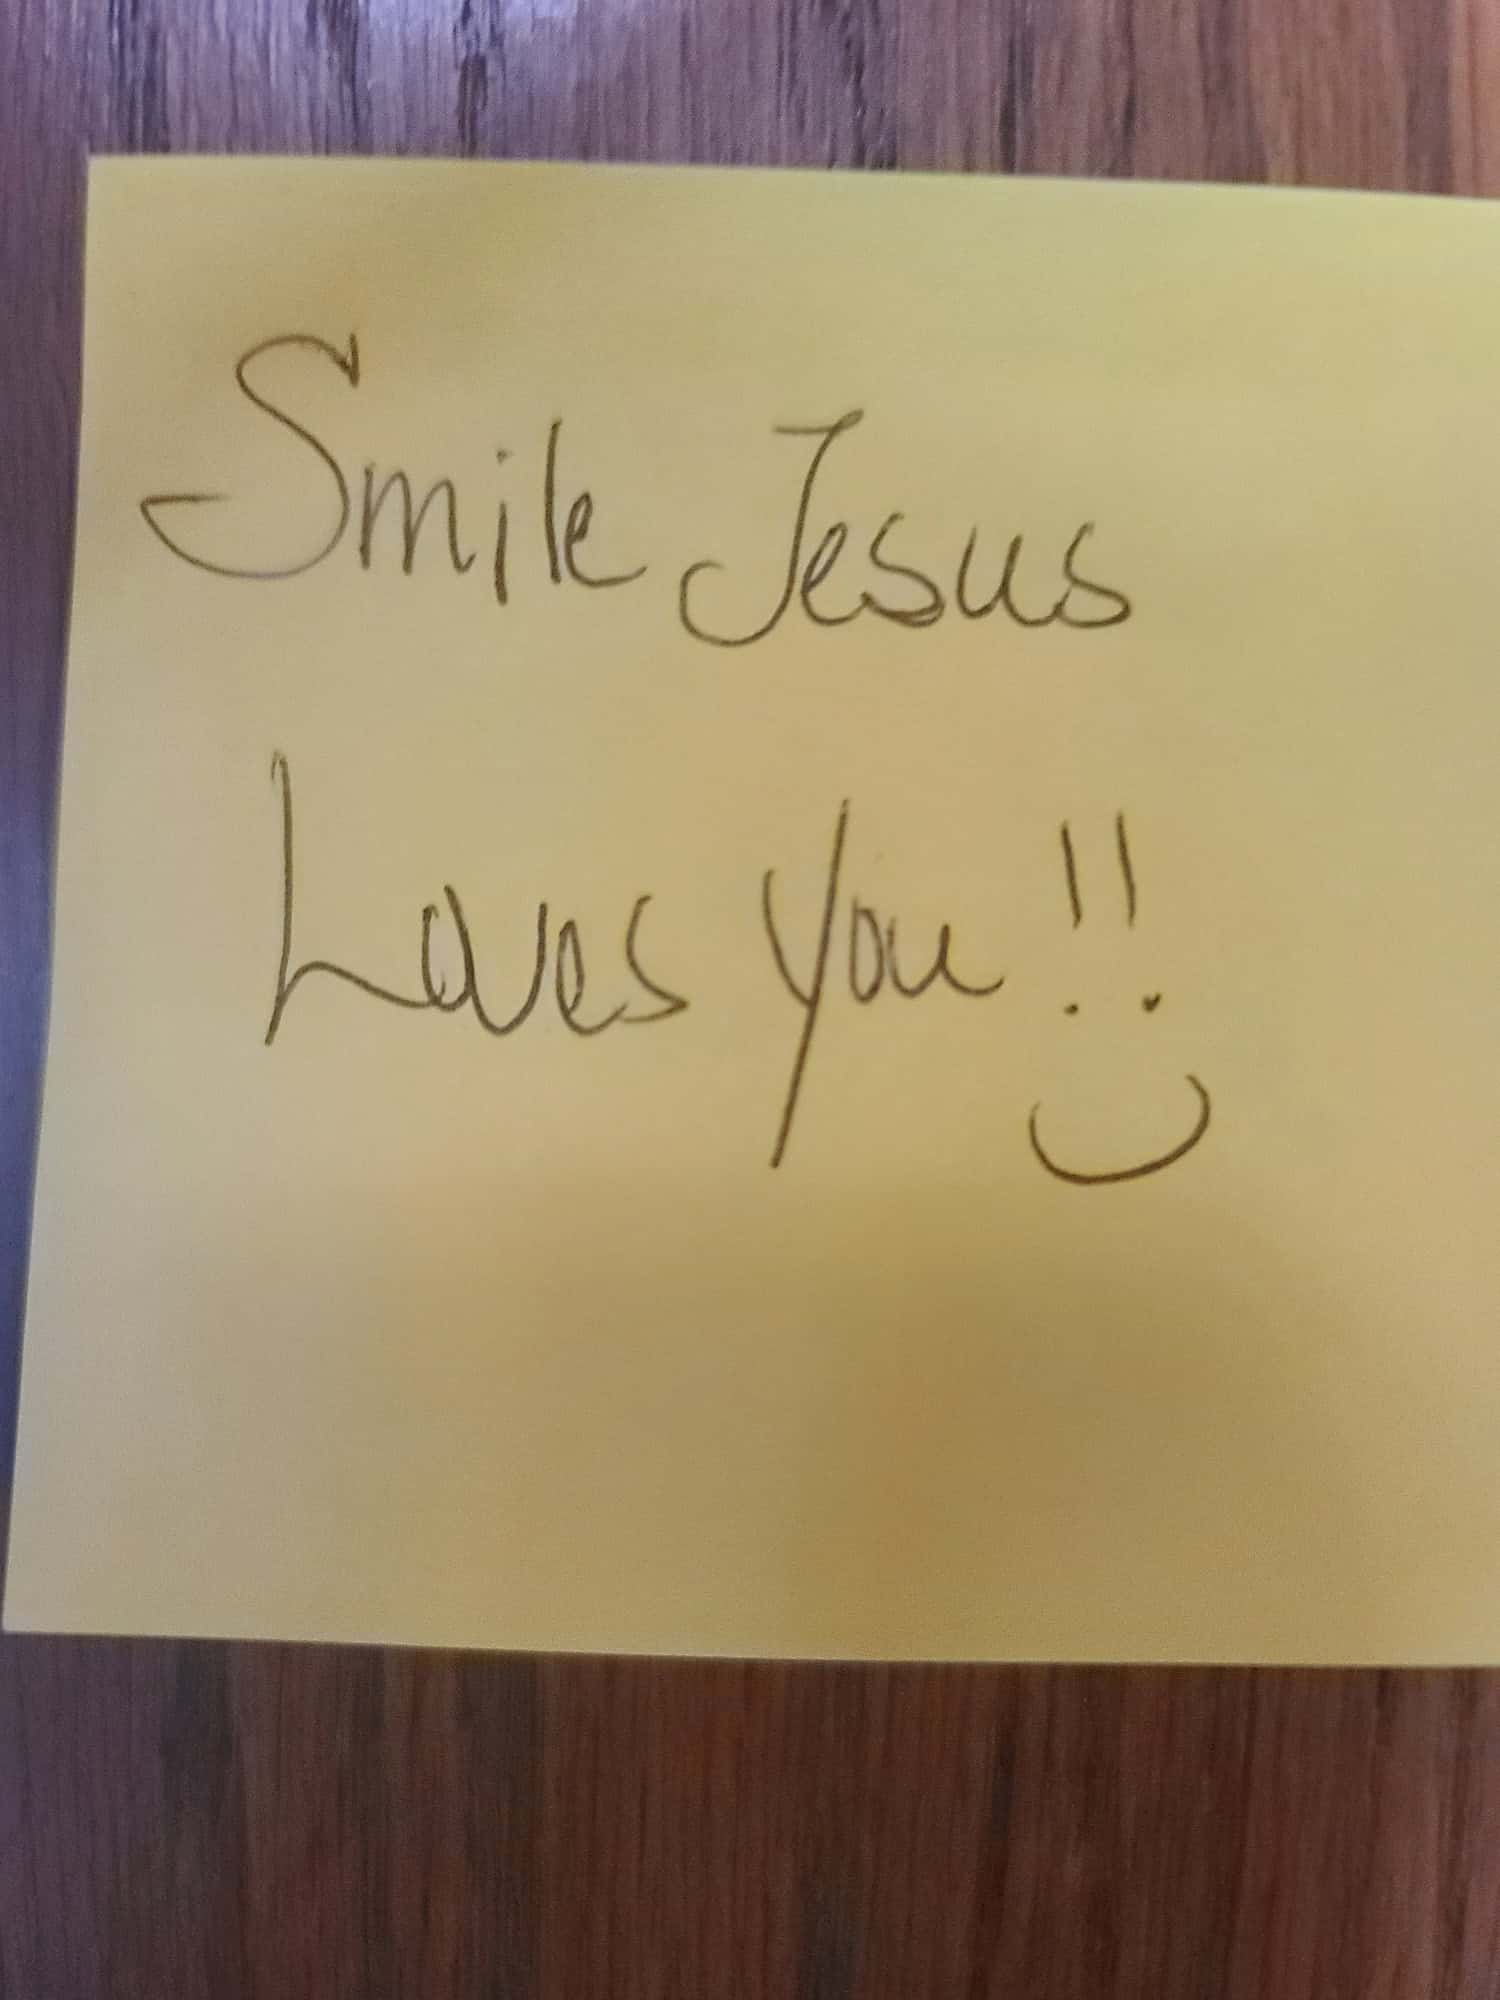 Smile Jesus
Loves You!!